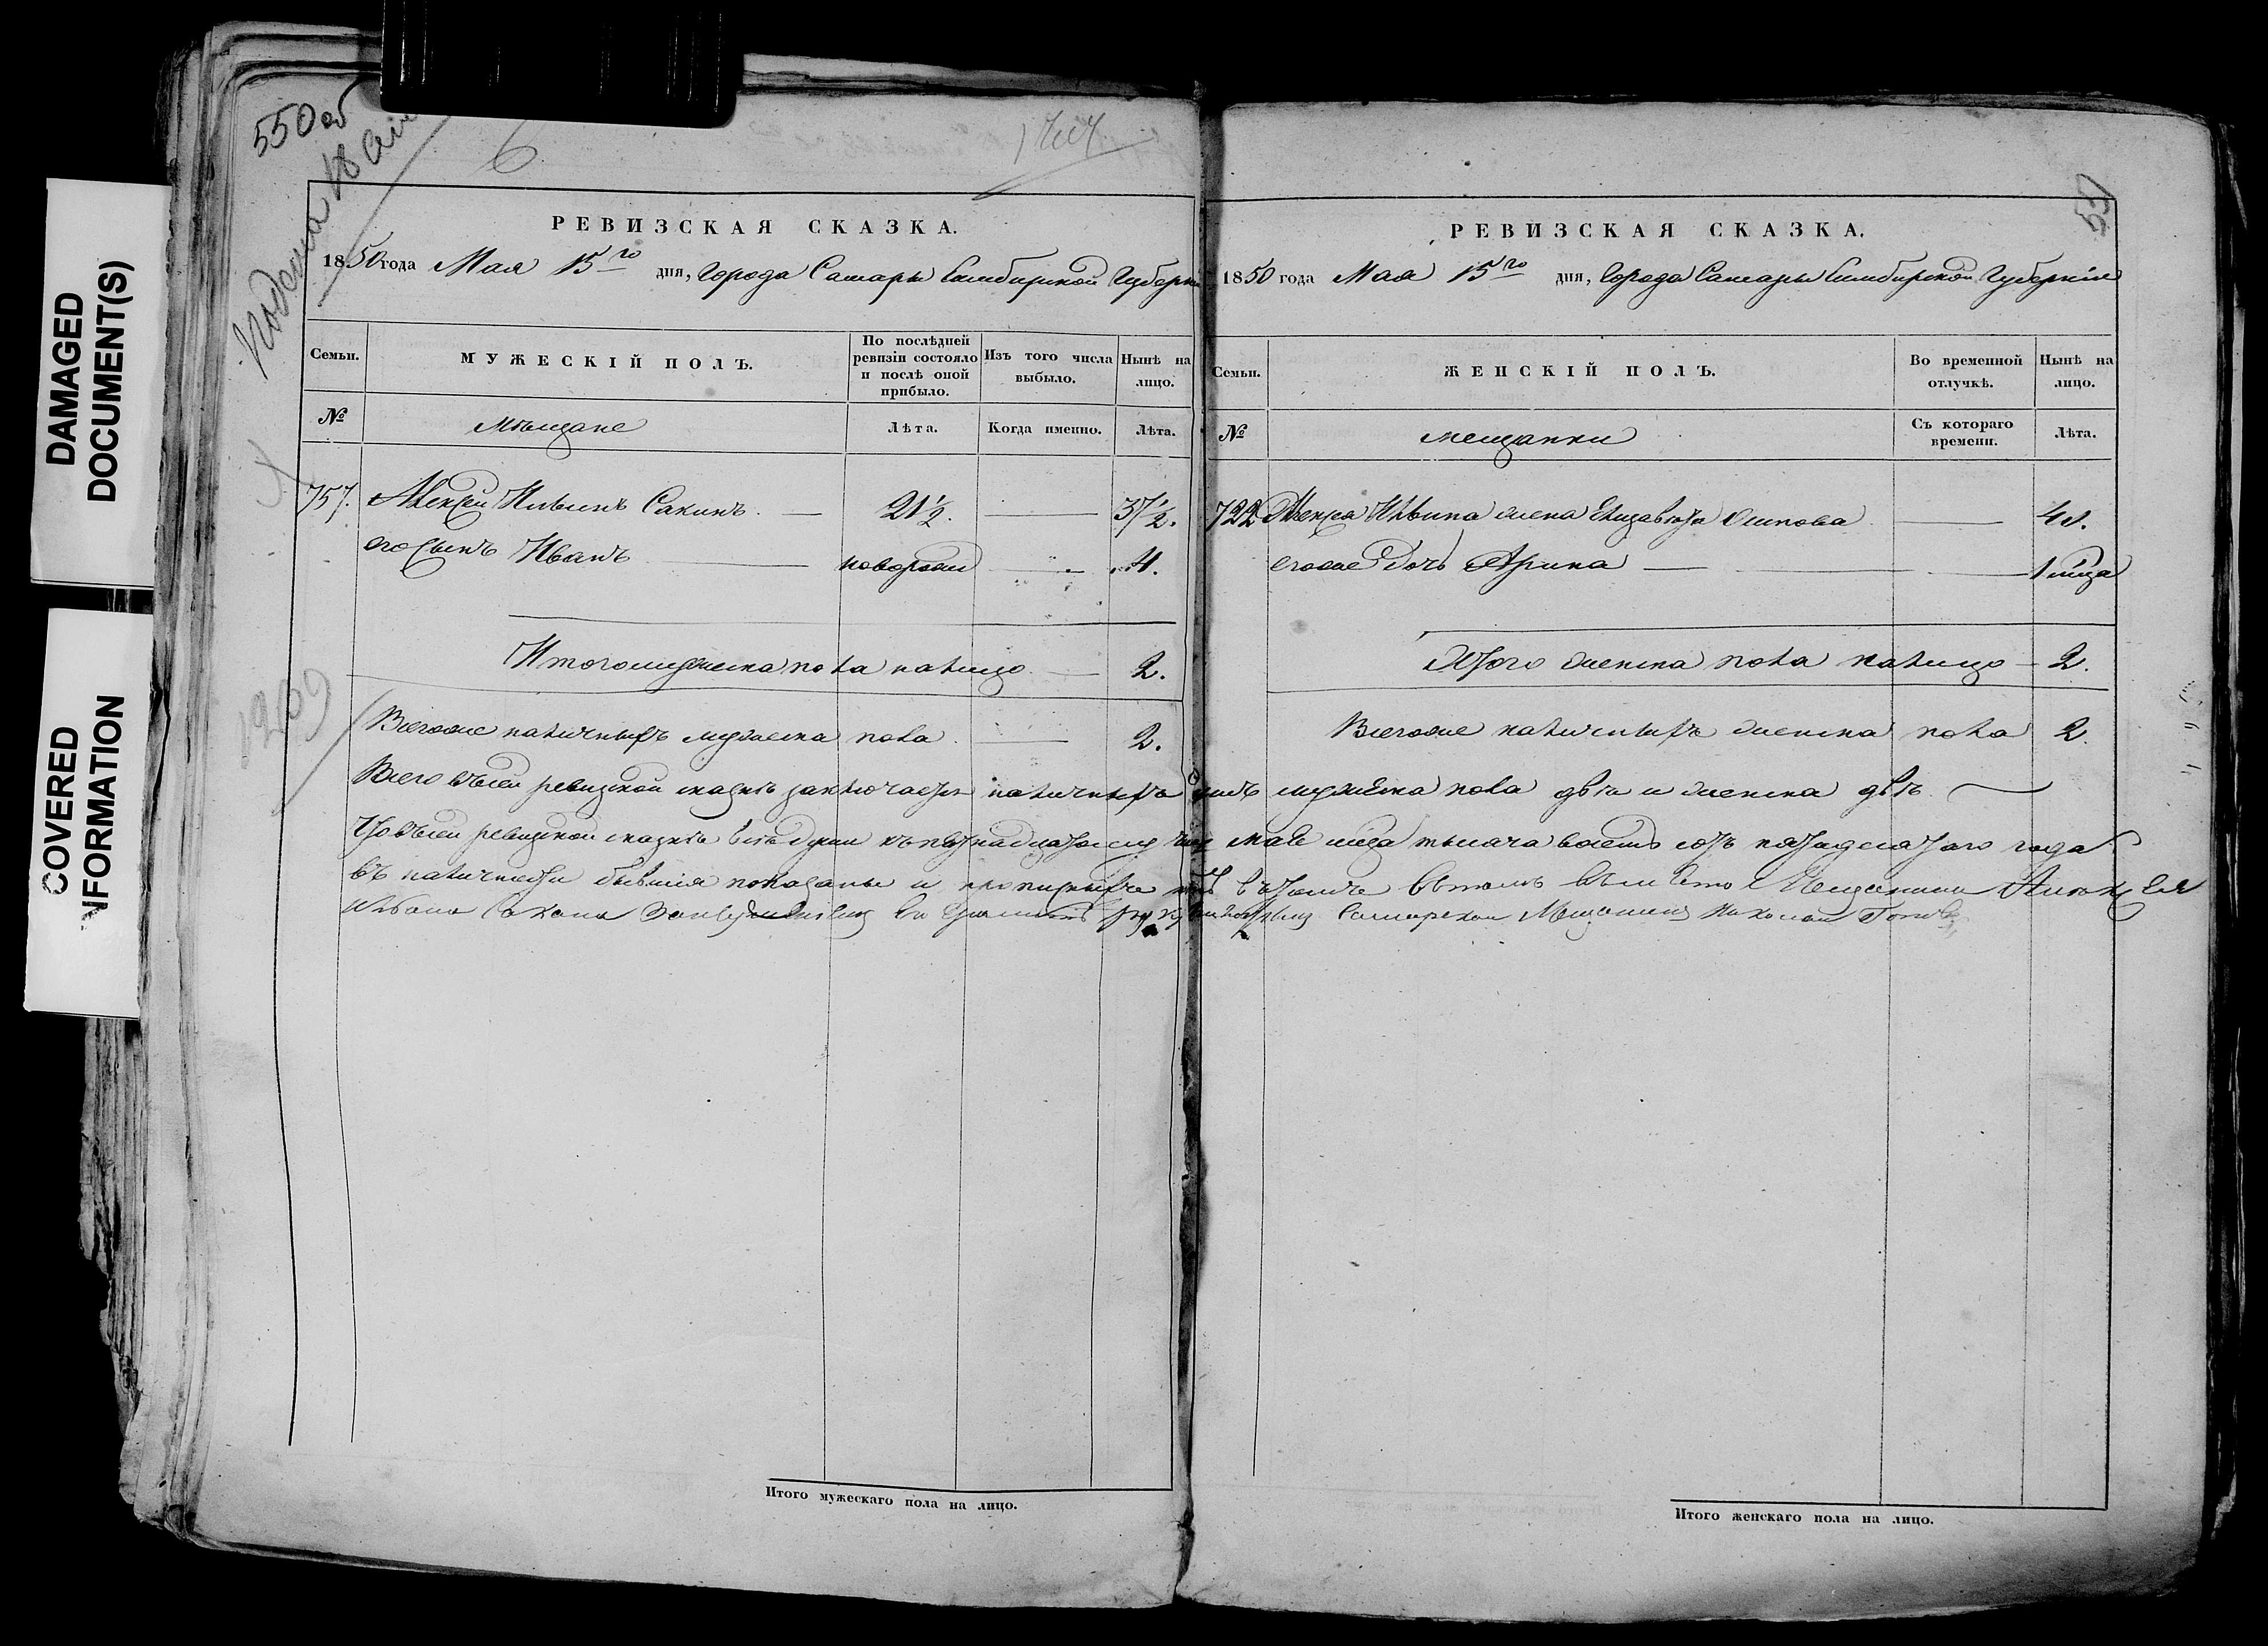 DAMAGED
DOCUMENT(S)
COVERED
INFORMATION
550 об
6
Подана 18
1209
РЕВИЗСКАЯ СКАЗКА.
1850 года Мая 15го дня, города Самары Симбирской Губернии
Семьи.
МУЖЕСКІЙ ПОЛЪ.
По послѣдней ревизіи состояло и послѣ оной прибыло.
Изъ того числа выбыло.
Нынѣ на лицо.
№
Мѣщане
Лѣта.
Когда именно.
Лѣта.
757. Алексей Ильинъ Сакинъ. 21½. 37½.
его сынъ Иванъ новорож 4.
Итого мужеска пола налицо 2.
Всегоже наличныхъ мужеска пола 2.
Итого мужескаго пола на лицо.
551
РЕВИЗСКАЯ СКАЗКА.
1850 года Мая 15го дня, города Самары Симбирской Губерніи
Семьи.
ЖЕНСКІЙ ПОЛЪ.
Во временной отлучкѣ.
Нынѣ на лицо.
№
мещанки
Съ котораго времени.
Лѣта.
722 Алексея Ильина жена Елизавета Осипова
егоже дочь Арина 1 мца
Итого женска пола налицо 2.
Всегоже наличныхъ женска пола 2.
Всего въсей ревизской сказке заключается наличныхъ душъ мужеска пола две и женска двѣ
Что въсей ревизской сказке все души къ пятнадцатому числу мая мсца тысяча восемь сотъ пятидесятаго года
въ наличности бывшия показаны и прописныхъ нетъ в томъ Мещанина Алексея
Самарской Мещанинъ
Итого женскаго пола на лицо.